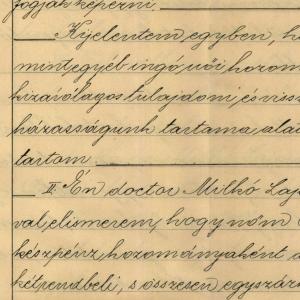 fogják képezni.
Kijelentem egyben, h
mint egyéb ingó, női hozom
kizávólagos tulajdoni, és viss
házasságunk tartama alat
tartom
II Én doctor Milkó Laj
val, elismerem, hogy nőm
készpénz hozományaként a
kétrendbeli, s összesen egyszáz